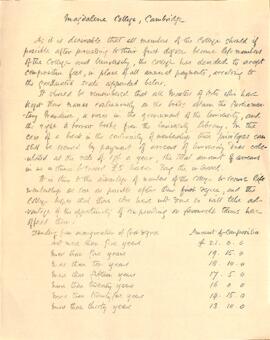 Magdalene College, Cambridge
As it is desirable that all members of the College should if
possible after proceeding to their first degree become life members
of the College and University, the College has decided to accept
composition fees, in place of all annual payments, according to
the conditions and table appended below.
It should be remembered that all Masters of Arts who have
kept their names continuously on the books obtain the Parliamen-
tary Franchise, a voice in the government of the University, and
the right to borrow books from the University Library. In the
case of a break in the continuity of membership these privileges can
still be by payment of arrears of University dues calc-
ulated at the rate of a year, the total amount of arrears
in no instance to exceed £5
It is thus to the advantage of members of the College to secure life
membership as soon as possible after their first degree, and the
College hopes that those who have not done so will take ad-
vantage of the opportunity of compounding on favourable terms here
offered them.
Standing from inauguration of first degree Amount of Composition
not more than five years £ 21. 0. 0
more than five years 19. 15. 0
more than ten years 18. 10. 0
more than fifteen years 17. 5. 0
more than twenty years 16. 0. 0
more than twenty five years 14. 15. 0
more than thirty years 13. 10. 0